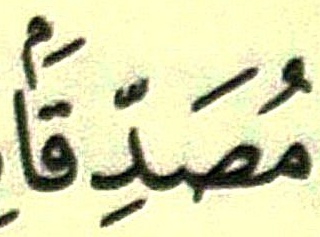 مُصَدِّقَۢا